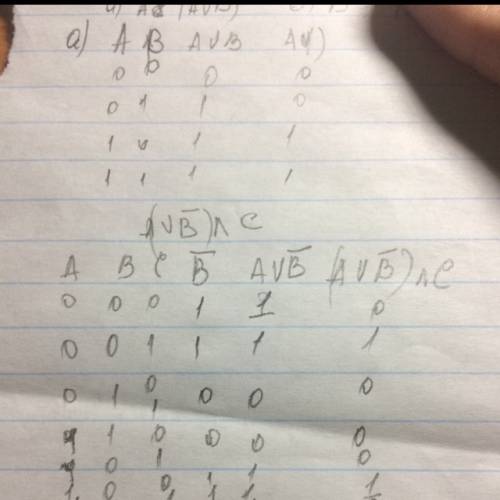 a) A B A∨B A∨)
0 0 0 0
0 1 1 0
1 0 1 1
1 1 1 1
(A∨B̅)∧C
A B C B̅ A∨B̅ (A∨B̅)∧C
0 0 0 1 1 0
0 0 1 1 1 1
0 1 0 0 0 0
1
1 0 0 0 0
0 1 0
1 0 0 1 1 1